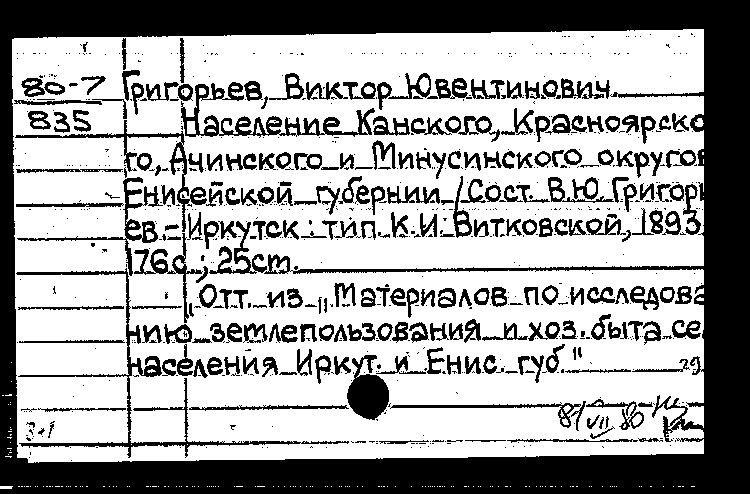 80-7 Григорьев, Виктор Ювентинович.
835 Население Канского, Красноярско
го, Ачинского и Минусинского округов
Енисейской губернии / Сост. В.Ю. Григорь
ев. - Иркутск : тип. К.И. Витковской, 1893
176с. ; 25cm.
„Отт. из „Материалов по исследова
нию землепользования и хоз. быта се
населения Иркут. и Енис. губ."
29
VII 80
3-1